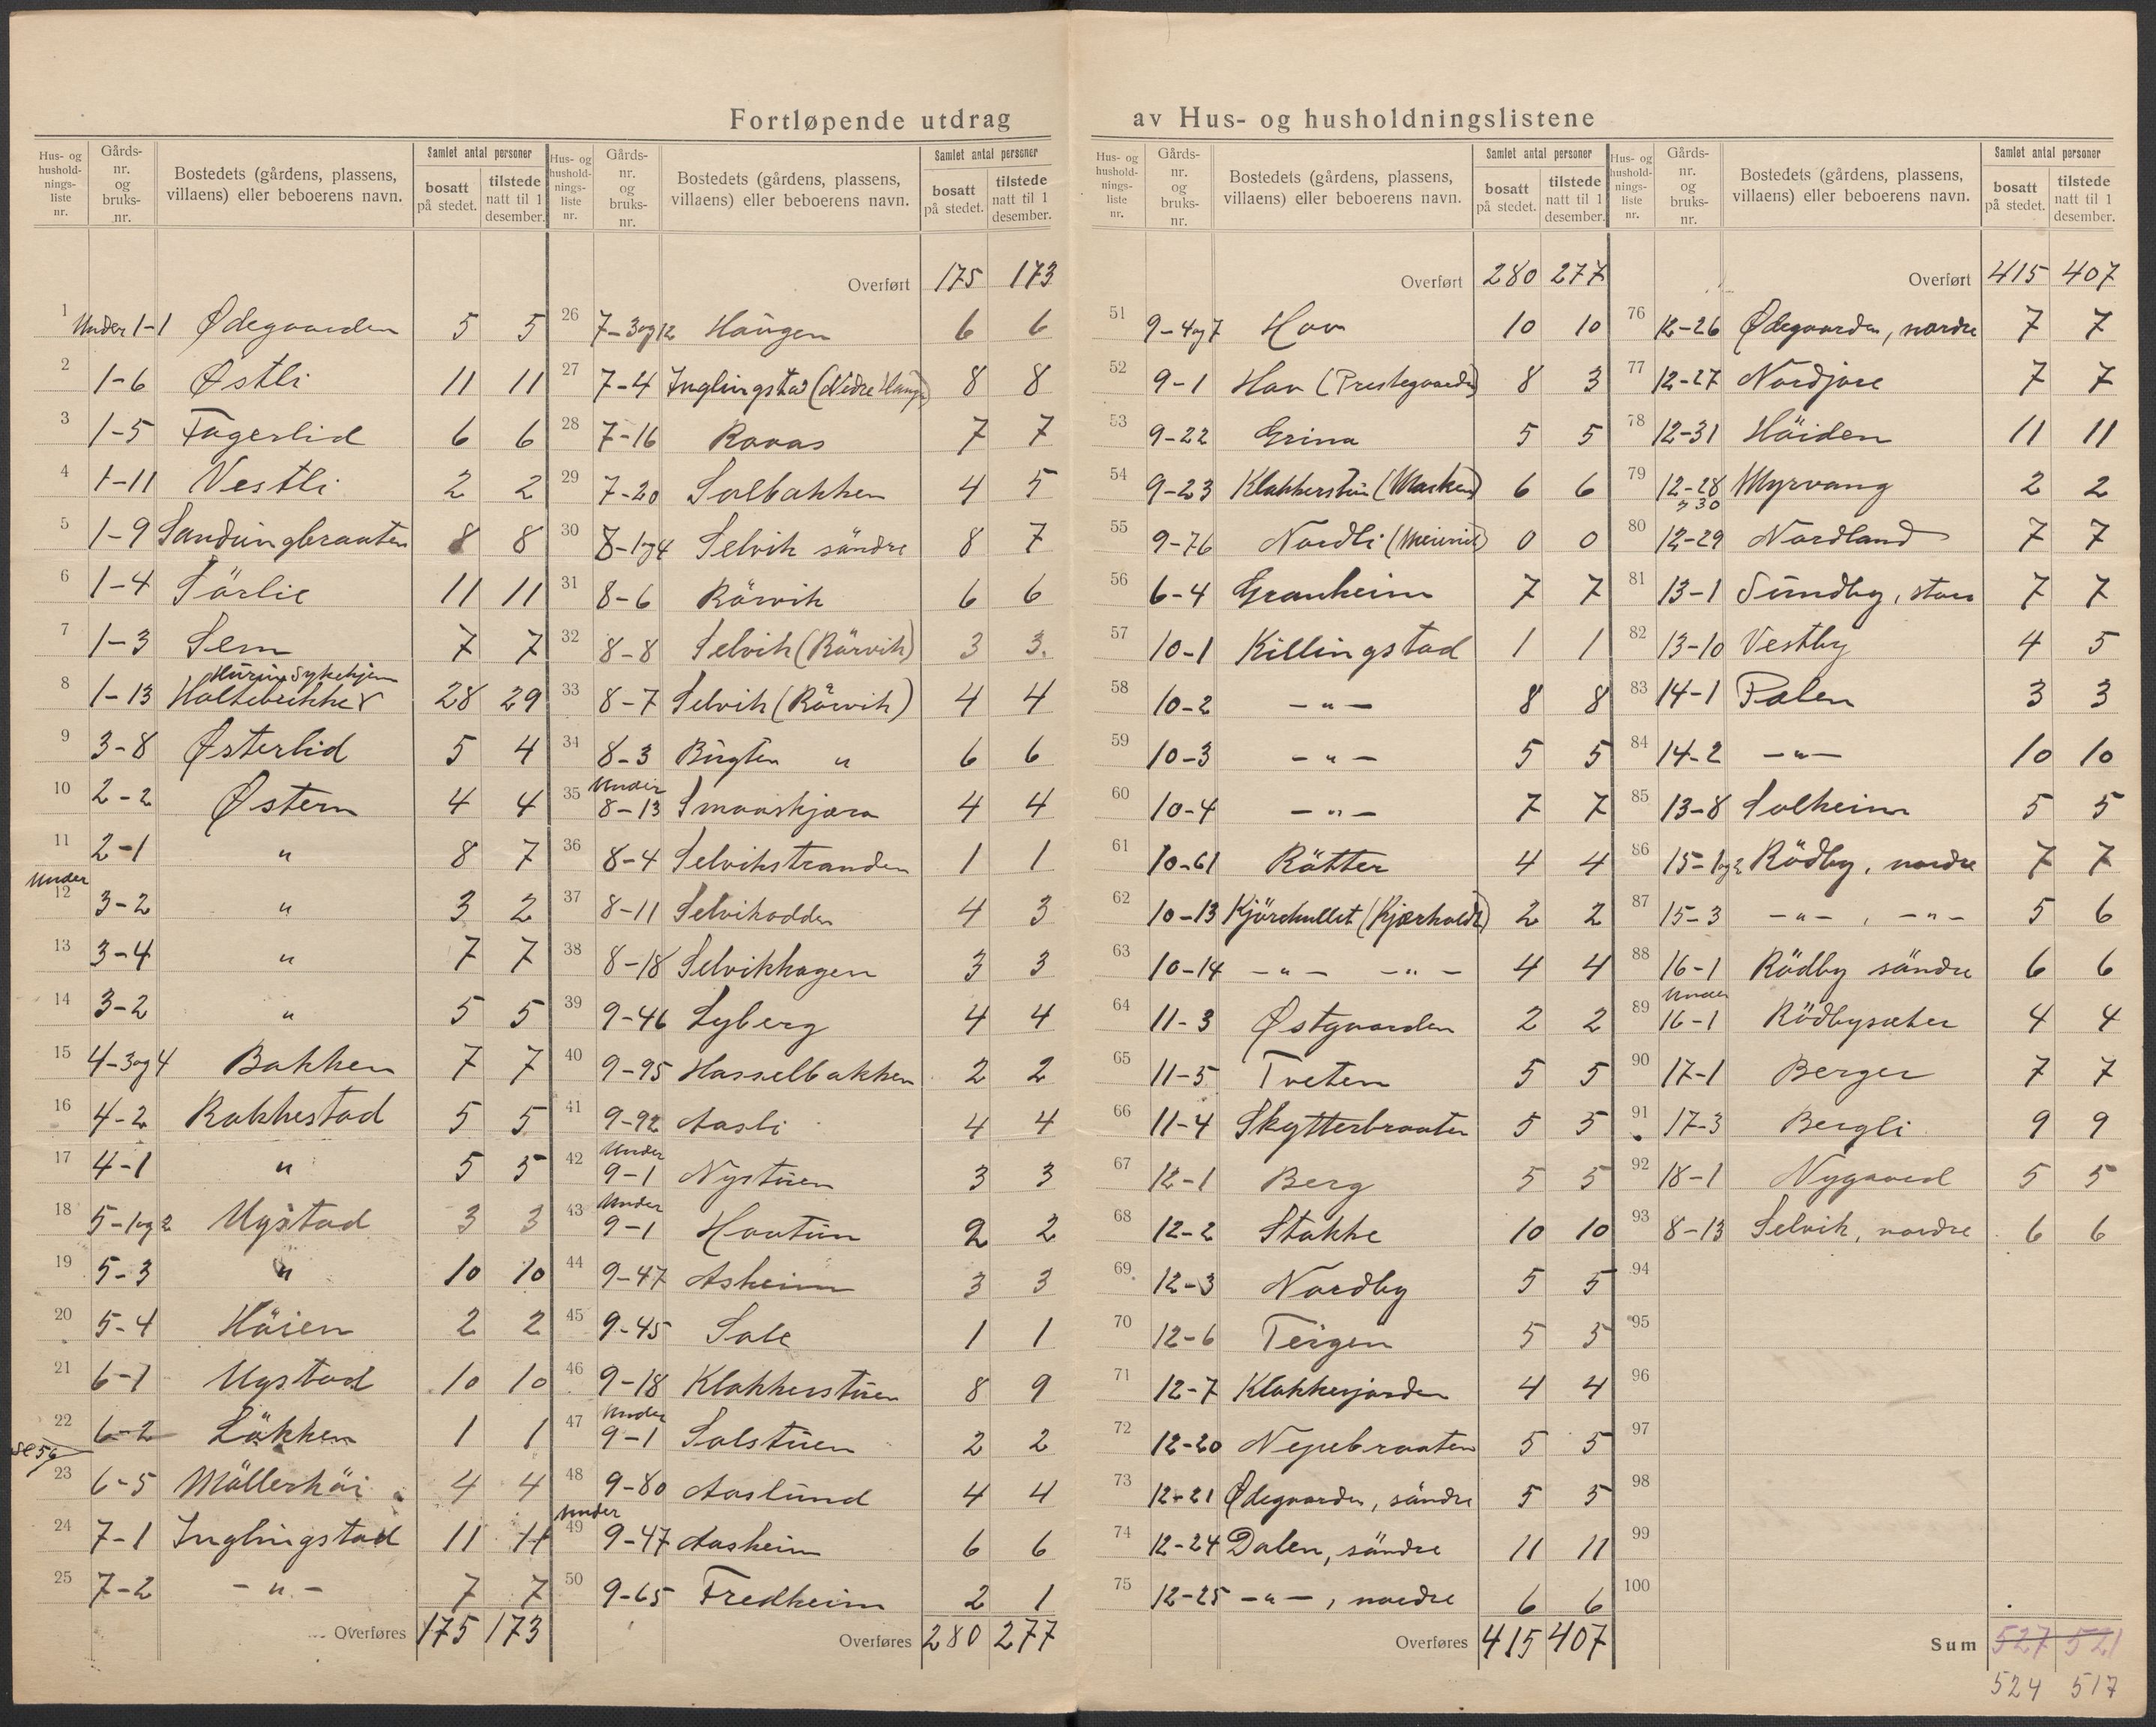 Fortløpende utdrag av Hus- og husholdningslistene
Hus- og hushold-nings-liste nr. Gårds-nr. og bruks-nr. Bostedets (gårdens, plassens, villaens) eller beboerens navn. Samlet antal personer bosatt på stedet. tilstede natt til 1 desember.
1 Under 1-1 Ødegaarden 5 5
2 1-6 Østli 11 11
3 1-5 Fagerlid 6 6
4 1-11 Vestli 2 2
5 1-9 Sandungbraaten 8 8
6 1-4 Sörlie 11 11
7 1-3 Sem 7 7
Hurum Sykehjem
8 1-13 Holtebekk 28 29
9 3-8 Østerlid 5 4
10 2-2 Østern 4 4
11 2-1 " 8 7
Under
12 3-2 " 3 2
13 3-4 " 7 7
14 3-2 " 5 5
15 4-3og4 Bakken 7 7
16 4-2 Rakkestad 5 5
17 4-1 " 5 5
18 5-1og2 Ugstad 3 3
19 5-3 " 10 10
20 5-4 Höien 2 2
21 6-1 Ugstad 10 10
22 6-2 Lökken 1 1
se 56
23 6-5 Möllerhöi 4 4
24 7-1 Inglingstad 11 11
25 7-2 -"- 7 7
Overføres 175 173
Hus- og hushold-nings-liste nr. Gårds-nr. og bruks-nr. Bostedets (gårdens, plassens, villaens) eller beboerens navn. Samlet antal personer bosatt på stedet. tilstede natt til 1 desember.
Overført 175 173
26 7-3og12 Haugen 6 6
27 7-4 Inglingstad (Nedre Haugen) 8 8
28 7-16 Raaas 7 7
29 7-20 Solbakken 4 5
30 8-1og4 Selvik söndre 8 7
31 8-6 Rörvik 6 6
32 8-8 Selvik (Rörvik) 3 3.
33 8-7 Selvik (Rörvik) 4 4
34 8-3 Bugten " 6 6
Under
35 8-13 Smaaskjæra 4 4
36 8-4 Selvikstranden 1 1
37 8-11 Selvikodden 4 3
38 8-18 Selvikhagen 3 3
39 9-46 Lyberg 4 4
40 9-95 Hasselbakken 2 2
41 9-92 Aasli 4 4
Under
42 9-1 Nystuen 3 3
Under
43 9-1 Hovtun 2 2
44 9-47 Asheim 3 3
45 9-45 Sole 1 1
46 9-18 Klokkerstuen 8 9
Under
47 9-1 Solstuen 2 2
48 9-80 Aaslund 4 4
Under
49 9-47 Aasheim 6 6
50 9-65 Fredheim 2 1
Overføres 280 277
Hus- og hushold-nings-liste nr. Gårds-nr. og bruks-nr. Bostedets (gårdens, plassens, villaens) eller beboerens navn. Samlet antal personer bosatt på stedet. tilstede natt til 1 desember.
Overført 280 277
51 9-4og7 Hov 10 10
52 9-1 Hov (Prestegaarden) 8 3
53 9-22 Grina 5 5
54 9-23 Klokkerstun 6 6
55 9-76 Nordli (Meieriet) 0 0
56 6-4 Granheim 7 7
57 10-1 Killingstad 1 1
58 10-2 -"- 8 8
59 10-3 -"- 5 5
60 10-4 -"- 7 7
61 10-61 Råtter 4 4
62 10-13 Kjörehullet (Kjærholdt) 2 2
63 10-14 -"- -"- 4 4
64 11-3 Østgaarden 2 2
65 11-5 Tveten 5 5
66 11-4 Skytterbraaten 5 5
67 12-1 Berg 5 5
68 12-2 Stokke 10 10
69 12-3 Nordby 5 5
70 12-6 Teigen 5 5
71 12-7 Klokkerjorden 4 4
72 12-20 Nepebraaten 5 5
73 12-21 Ødegaarden, söndre 5 5
74 12-24 Dalen, söndre 11 11
75 12-25 -"-, nordre 6 6
Overføres 415 407
Hus- og hushold-nings-liste nr. Gårds-nr. og bruks-nr. Bostedets (gårdens, plassens, villaens) eller beboerens navn. Samlet antal personer bosatt på stedet. tilstede natt til 1 desember.
Overført 415 407
76 12-26 Ødegaarden, nordre 7 7
77 12-27 Nordjore 7 7
78 12-31 Höiden 11 11
79 12-28 Myrvang 2 2
" 30
80 12-29 Nordland 7 7
81 13-1 Sundby, store 7 7
82 13-10 Vestby 4 5
83 14-1 Folen 3 3
84 14-2 -"- 10 10
85 13-8 Solheim 5 5
86 15-1og2 Rödby, nordre 7 7
87 15-3 -"-, -"- 5 6
88 16-1 Rödby söndre 6 6
Under
89 16-1 Rödbysæter 4 4
90 17-1 Berger 7 7
91 17-3 Bergli 9 9
92 18-1 Nygaard 5 5
93 8-13 Selvik, nordre 6 6
94
95
96
97
98
99
100
Sum 527 521
524 517